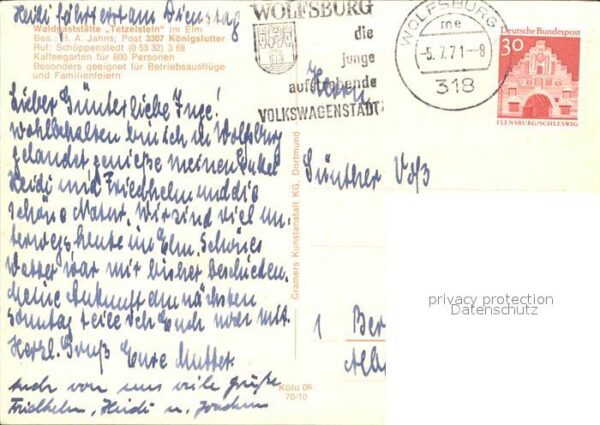 Heidi fährt erst am Dienstag
Waldgaststätte „Tetzelstein" im Elm
Bes.: H. A. Jahns, Post 3307 Königslutter
Ruf: Schöppenstedt (0 53 32) 3 69
Kaffeegarten für 600 Personen
Besonders geeignet für Betriebsausflüge
und Familienfeiern
Lieber Günter liebe Inge!
wohlbehalten bin ich in Wolfsburg
gelandet genieße meinen
Heidi und Friedhelm und die
schöne Natur. Wir sind viel un-
terwegs, heute im Elm. Schönes
Wetter war mir bisher beschieden.
Meine Ankunft am nächsten
Sonntag teile ich Euch noch mit.
Herzl. Gruß Eure Mutter.
Auch von uns viele Grüße
Friedhelm, Heidi u. Joachim
Cramers Kunstanstalt KG, Dortmund
Kölu 06
70/10
WOLFSBURG
die
junge
aufstrebende
VOLKSWAGENSTADT
WOLFSBURG
-5.7.71-8
318
Deutsche Bundespost
30
FLENSBURG/SCHLESWIG
Herrn
Günther Voß
1 Ber
privacy protection
Datenschutz